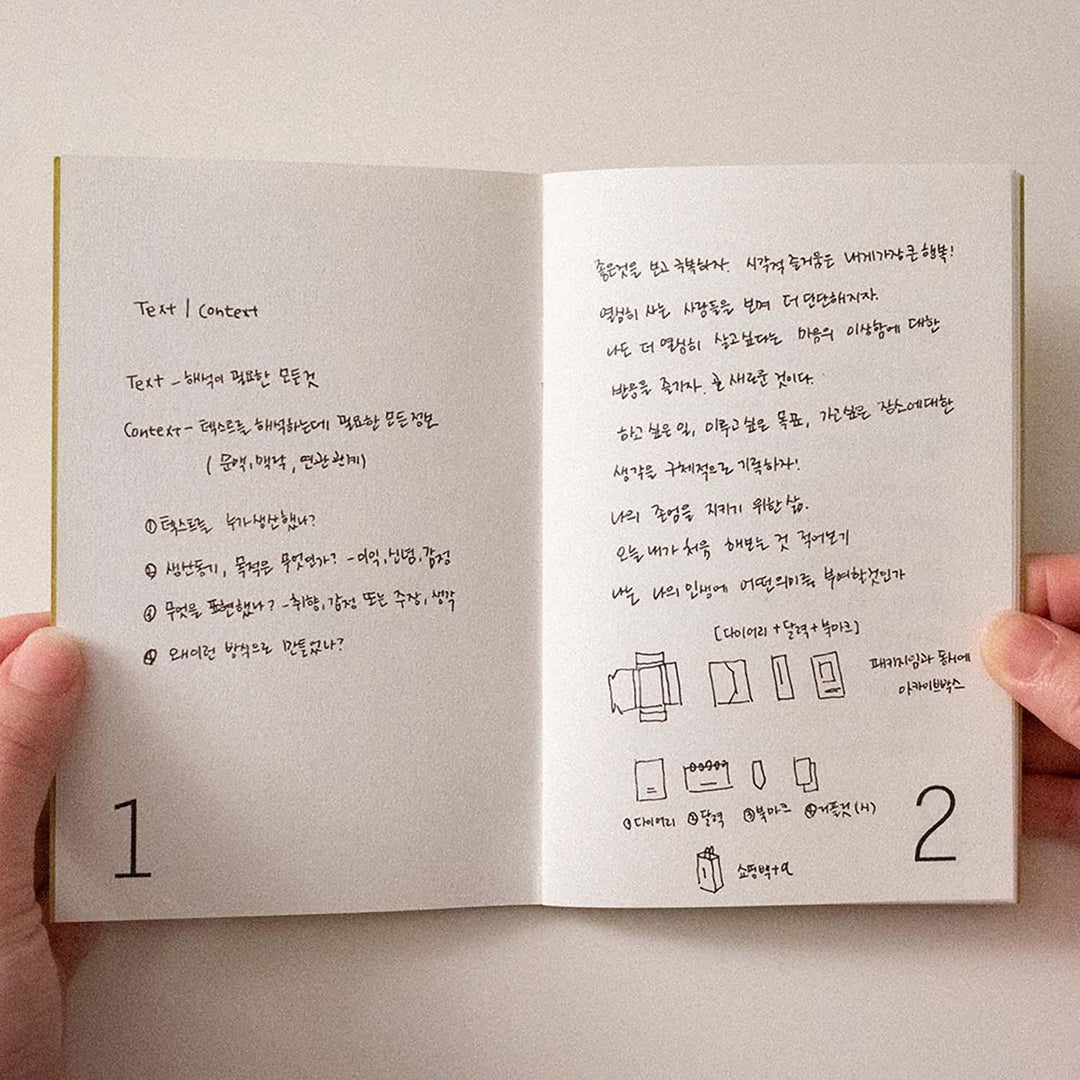 Text | Context
Text - 해석이 필요한 모든것
Context - 텍스트를 해석하는데 필요한 모든 정보
( 문맥, 맥락, 연관관계)
① 텍스트를 누가 생산했나?
② 생산동기, 목적은 무엇인가? - 이익, 신념, 감정
③ 무엇을 표현했나? - 취향, 감정 또는 주장, 생각
④ 왜 이런 방식으로 만들었나?
1
좋은것을 보고 극복하자. 시각적 즐거움은 내게 가장 큰 행복!
열심히 사는 사람들을 보며 더 단단해지자.
나도 더 열심히 살고싶다는 마음의 이상함에 대한
반응을 즐기자. 곧 새로운 것이다.
하고 싶은 일, 이루고 싶은 목표, 가고 싶은 장소에 대한
생각을 구체적으로 기록하자!
나의 존엄을 지키기 위한 삶.
오늘 내가 처음 해보는 것 적어보기
나는 나의 인생에 어떤 의미를 부여할것인가
[다이어리 + 달력 + 북마크]
패키지임과 동시에
아카이브박스
① 다이어리 ② 달력 ③ 북마크 ④ 리플렛 (시)
쇼핑백+α
2